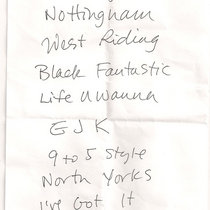 Nottingham
West Riding
Black Fantastic
Life U Wanna
E J K
9 to 5 Style
North Yorks
I've Got It